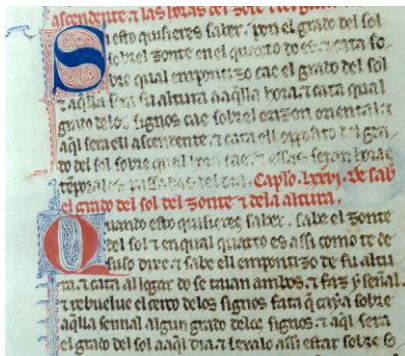 ascendente ⁊ las horas del
Si esto quisieres saber. pon el grado del sol
sobrel zonte en el quarto do es. ⁊ cata so
bre qual empontizo cae el grado del sol
⁊ aq̃lla sera su altura a aq̃lla hora. ⁊ cata qual
grado delos signos cae sobrel orizon oriental ⁊
aq̃l sera ell ascendente. ⁊ cata ell opposito del gra
do del sol sobre qual hora cae. ⁊ essas seran horas
tẽporales passadas del dia. Capl̃o. lxxvi. De sab
el grado del sol del zonte ⁊ dela altura.
Quando esto quisieres saber. sabe el zonte
del sol ⁊ en qual quarto es assi como te de
suso dixe. ⁊ sabe ell empontizo de su altu
ra. ⁊ cata al logar do se taian ambos. ⁊ faz y señal.
⁊ rebuelue el cerco delos signos fata q̃ caya sobre
aq̃lla sennal algun grado delos signos. ⁊ aq̃l sera
el grado del sol aaq̃l dia. ⁊ leualo assi estar sobre so